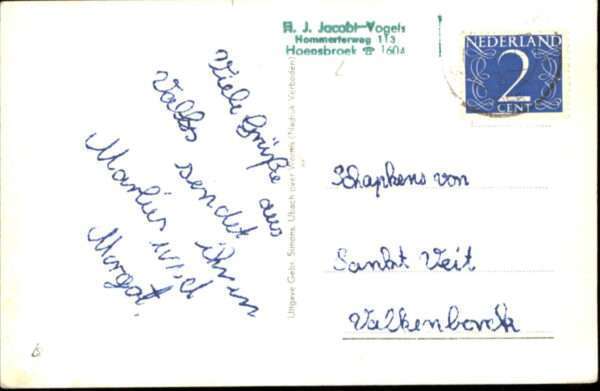 H. J. Jacobi-Vogels
Hommerterweg 113
Hoensbroek ☎ 1604
NEDERLAND
2
CENT
Viele Grüße aus
Valks sendet ihnen
Marlies und
Margot.
Uitgave Gebr. Simons, Ubach over Worms (Nadruk Verboden)
Schapkens von
Sankt Veit
Valkenborck